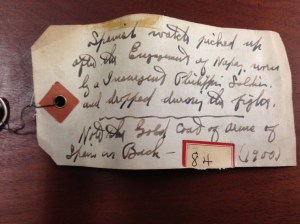 Spanish watch picked up
after the Engagement of Napay, worn
by a Insurgent Philippin Soldier
and dropped during the fight.
Note the Gold coat of arms of
Spain on Back — 84 (1900)